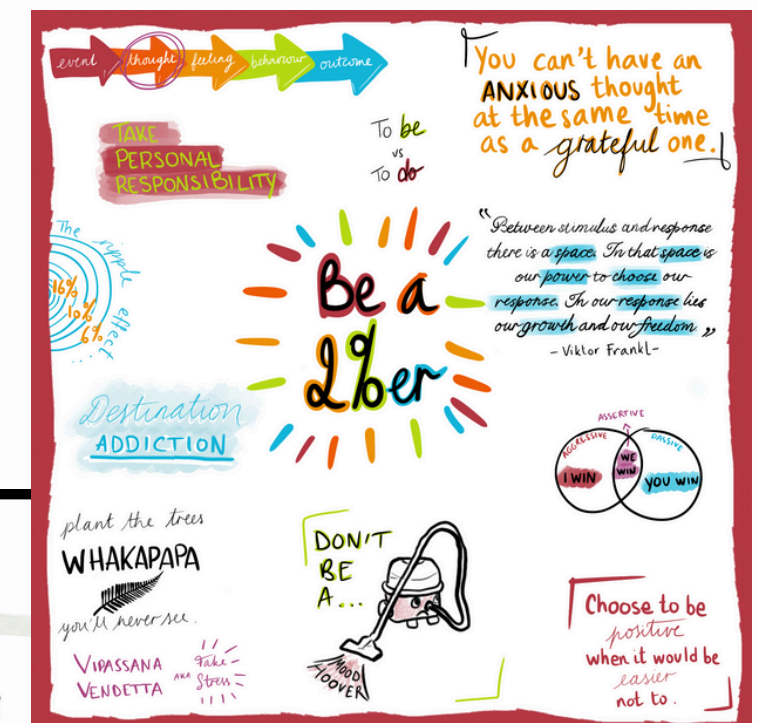 event thought feeling behaviour outcome
You can't have an
ANXIOUS thought
at the same time
as a grateful one.
TAKE
PERSONAL
RESPONSIBILITY
To be
vs
To do
The ripple effect...
16%
10%
6%
Be a
2%er
"Between stimulus and response
there is a space. In that space is
our power to choose our
response. In our response lies
our growth and our freedom."
- Viktor Frankl -
Destination
ADDICTION
ASSERTIVE
AGGRESSIVE
PASSIVE
I WIN
WE
WIN
YOU WIN
plant the trees
WHAKAPAPA
you'll never see.
DON'T
BE
A...
MOOD
HOOVER
VIPASSANA
VENDETTA
AKA
Fake
Stress
Choose to be
positive
when it would be
easier
not to.